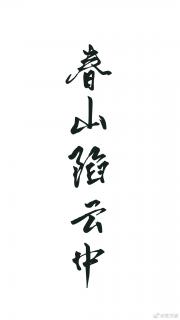 春山陷云中